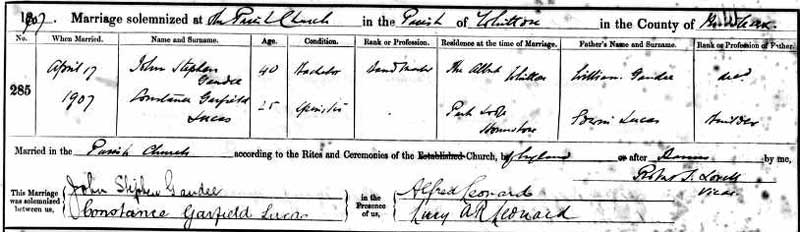 1907. Marriage solemnized at the Parish Church in the Parish of Whitton in the County of Middlesex
No. When Married. Name and Surname. Age. Condition. Rank or Profession. Residence at the time of Marriage. Father's Name and Surname. Rank or Profession of Father.
285 April 17 1907
John Stephen Gandee 40 Bachelor Bandmaster The Albert Whitton William Gandee dec'd
Constance Garfield Lucas 25 Spinster Park Lodge Hounslow Edwin Lucas Builder
Married in the Parish Church according to the Rites and Ceremonies of the Established Church, of England or after Banns by me,
This Marriage was solemnized between us, John Stephen Gandee Constance Garfield Lucas in the Presence of us, Alfred Leonard Lucy A R Leonard
Vicar